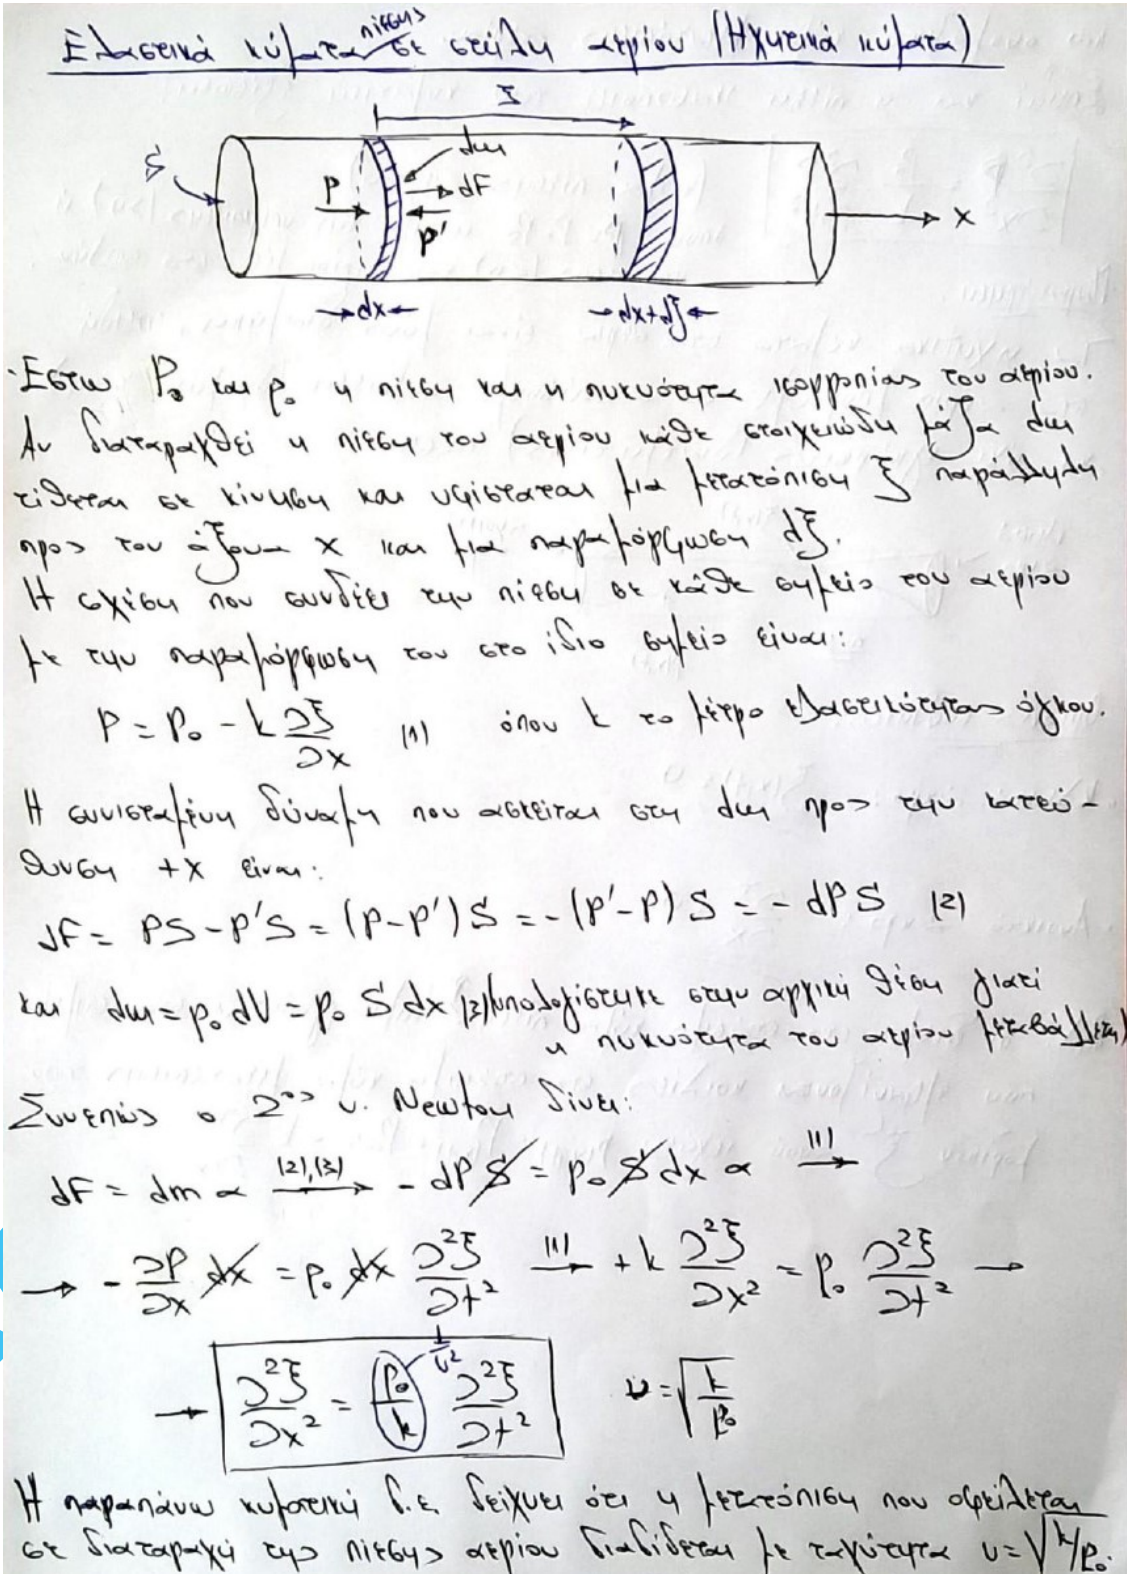 Ελαστικά κύματα πίεσης σε στήλη αερίου (Ηχητικά κύματα)
ξ
S
dm
P
dF
P'
x
dx
dx+dξ
Έστω P₀ και ρ₀ η πίεση και η πυκνότητα ισορροπίας του αερίου.
Αν διαταραχθεί η πίεση του αερίου κάθε στοιχειώδη μάζα dm
τίθεται σε κίνηση και υφίσταται μια μετατόπιση ξ παράλληλη
προς τον άξονα x και μια παραμόρφωση dξ.
Η σχέση που συνδέει την πίεση σε κάθε σημείο του αερίου
με την παραμόρφωση του στο ίδιο σημείο είναι:
P = P₀ - k ∂ξ/∂x (1) όπου k το μέτρο ελαστικότητας όγκου.
Η συνισταμένη δύναμη που ασκείται στη dm προς την κατεύ-
θυνση +x είναι:
dF = PS - P'S = (P-P')S = -(P'-P)S = - dP S (2)
και dm = ρ₀ dV = ρ₀ S dx (3) (υπολογίστηκε στην αρχική θέση γιατί
η πυκνότητα του αερίου μεταβάλλεται)
Συνεπώς ο 2ος ν. Newton δίνει:
dF = dm α (2),(3)→ - dP S = ρ₀ S dx α (1)→
→ - ∂P/∂x dx = ρ₀ dx ∂²ξ/∂t² (1)→ + k ∂²ξ/∂x² = ρ₀ ∂²ξ/∂t² →
→ ∂²ξ/∂x² = ρ₀/k ∂²ξ/∂t² 1/υ² υ = √k/ρ₀
Η παραπάνω κυματική δ.ε. δείχνει ότι η μετατόπιση που οφείλεται
σε διαταραχή της πίεσης αερίου διαδίδεται με ταχύτητα υ = √k/ρ₀.